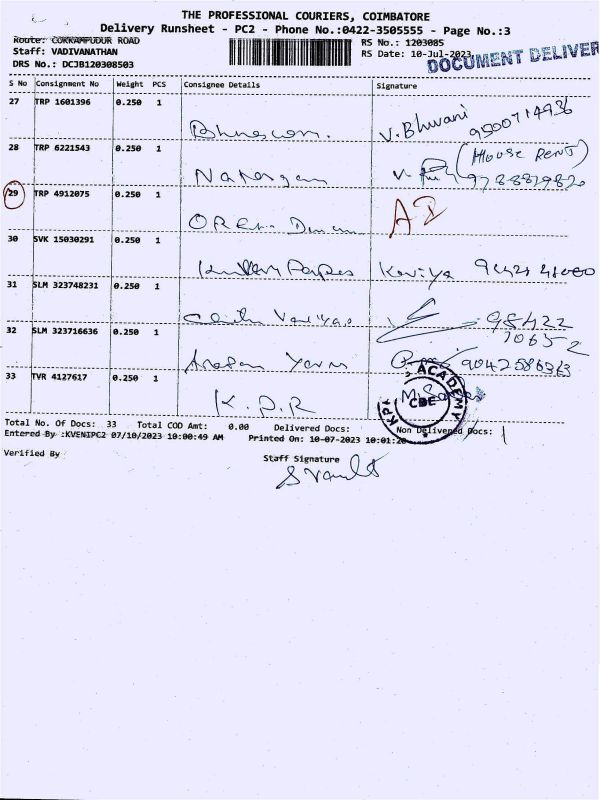 THE PROFESSIONAL COURIERS, COIMBATORE
Delivery Runsheet - PC2 - Phone No.:0422-3505555 - Page No.:3
Route: COKKAMPUDUR ROAD
RS No.: 1203085
Staff: VADIVANATHAN
RS Date: 10-Jul-2023
DOCUMENT DELIVER
DRS No.: DCJB120308503
S No Consignment No Weight PCS Consignee Details Signature
27 TRP 1601396 0.250 1
V. Bhvani 9500714936
28 TRP 6221543 0.250 1
(House Rent)
29 TRP 4912075 0.250 1
30 SVK 15030291 0.250 1
Kaviya
31 SLM 323748231 0.250 1
98422
32 SLM 323716636 0.250 1
Yarn 9042586363
33 TVR 4127617 0.250 1
K.P.R
ACADEMY
CBE
KPR
Total No. Of Docs: 33 Total COD Amt: 0.00 Delivered Docs: Non Delivered Docs: 1
Entered By :KVENIPC2 07/10/2023 10:00:49 AM Printed On: 10-07-2023 10:01:20
Verified By
Staff Signature